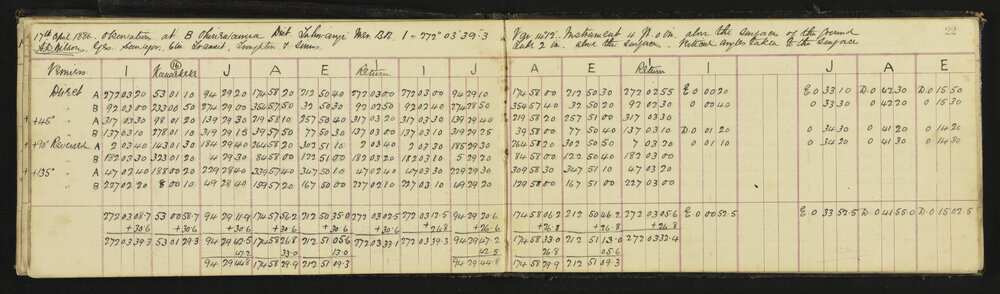 17th April 1886. Observation at B Dist. Mer. I - 272° 03' 39"3
Wilson, Geo. Surveyor, 6in Transit, Troughton & Simms.
Var 14°72'. Instrument 4 ft. 0 in. above the surface of the ground
2 in. above the surface. Vertical angles taken to the surface
22
Verniers I (16) J A E Return I I J A E Return I I J A E
Direct A 272 03 20 53 01 10 94 29 20 174 58 20 212 50 40 272 03 00 272 03 00 94 29 10 174 58 00 212 50 30 272 02 55 E. 0 00 20 E. 0 33 10 D. 0 42 30 D. 0 15 50
" B 92 03 00 233 00 50 274 29 00 354 57 50 32 50 30 92 02 50 92 02 40 274 28 50 354 57 40 32 50 20 92 02 30 0 00 40 0 33 30 0 42 20 0 15 30
+ +45° " A 317 03 30 98 01 20 139 29 30 219 58 10 257 50 40 317 03 20 317 03 30 139 29 40 219 58 20 257 51 00 317 03 30
" B 137 03 10 278 01 10 319 29 15 39 57 50 77 50 30 137 03 00 137 03 10 319 29 25 39 58 00 77 50 40 137 03 10 D. 0 01 20 0 34 30 0 41 20 0 14 20
+ +90° Reversed A 2 03 40 143 01 30 184 29 40 264 58 20 302 51 10 2 03 40 2 03 30 185 29 30 264 58 20 302 50 50 7 03 20 0 01 10 0 34 20 0 41 30 0 14 30
" B 182 03 30 323 01 20 4 29 30 84 58 00 122 51 00 182 03 20 182 03 10 5 29 20 84 58 00 122 50 40 182 03 00
+ +135° " A 47 02 40 188 00 20 229 28 40 339 57 40 347 50 10 47 02 40 47 03 30 229 29 30 309 58 30 347 51 10 47 03 20
" B 227 02 20 8 00 10 49 28 40 159 57 20 167 50 00 227 02 10 227 03 10 49 29 20 129 58 00 167 51 00 227 03 00
272 03 08.7 53 00 58.7 94 29 11.9 174 57 56.2 212 50 35.0 272 03 02.5 272 03 12.5 94 29 20.6 174 58 06.2 212 50 46.2 272 03 05.6 E. 0 00 52.5 E. 0 33 52.5 D. 0 41 55.0 D. 0 15 02.5
+30.6 +30.6 +30.6 +30.6 +30.6 +26.8 +26.6 +26.8 +26.8 +26.8
272 03 39.3 53 01 29.3 94 29 42.5 174 58 26.8 212 51 05.6 272 03 33.1 272 03 39.3 94 29 47.2 174 58 33.0 212 51 13.0 272 03 32.4
47.2 33.0 13.0 42.5 26.8 05.6
94 29 44.8 174 58 29.9 212 51 09.3 94 29 44.8 174 58 29.9 212 51 09.3